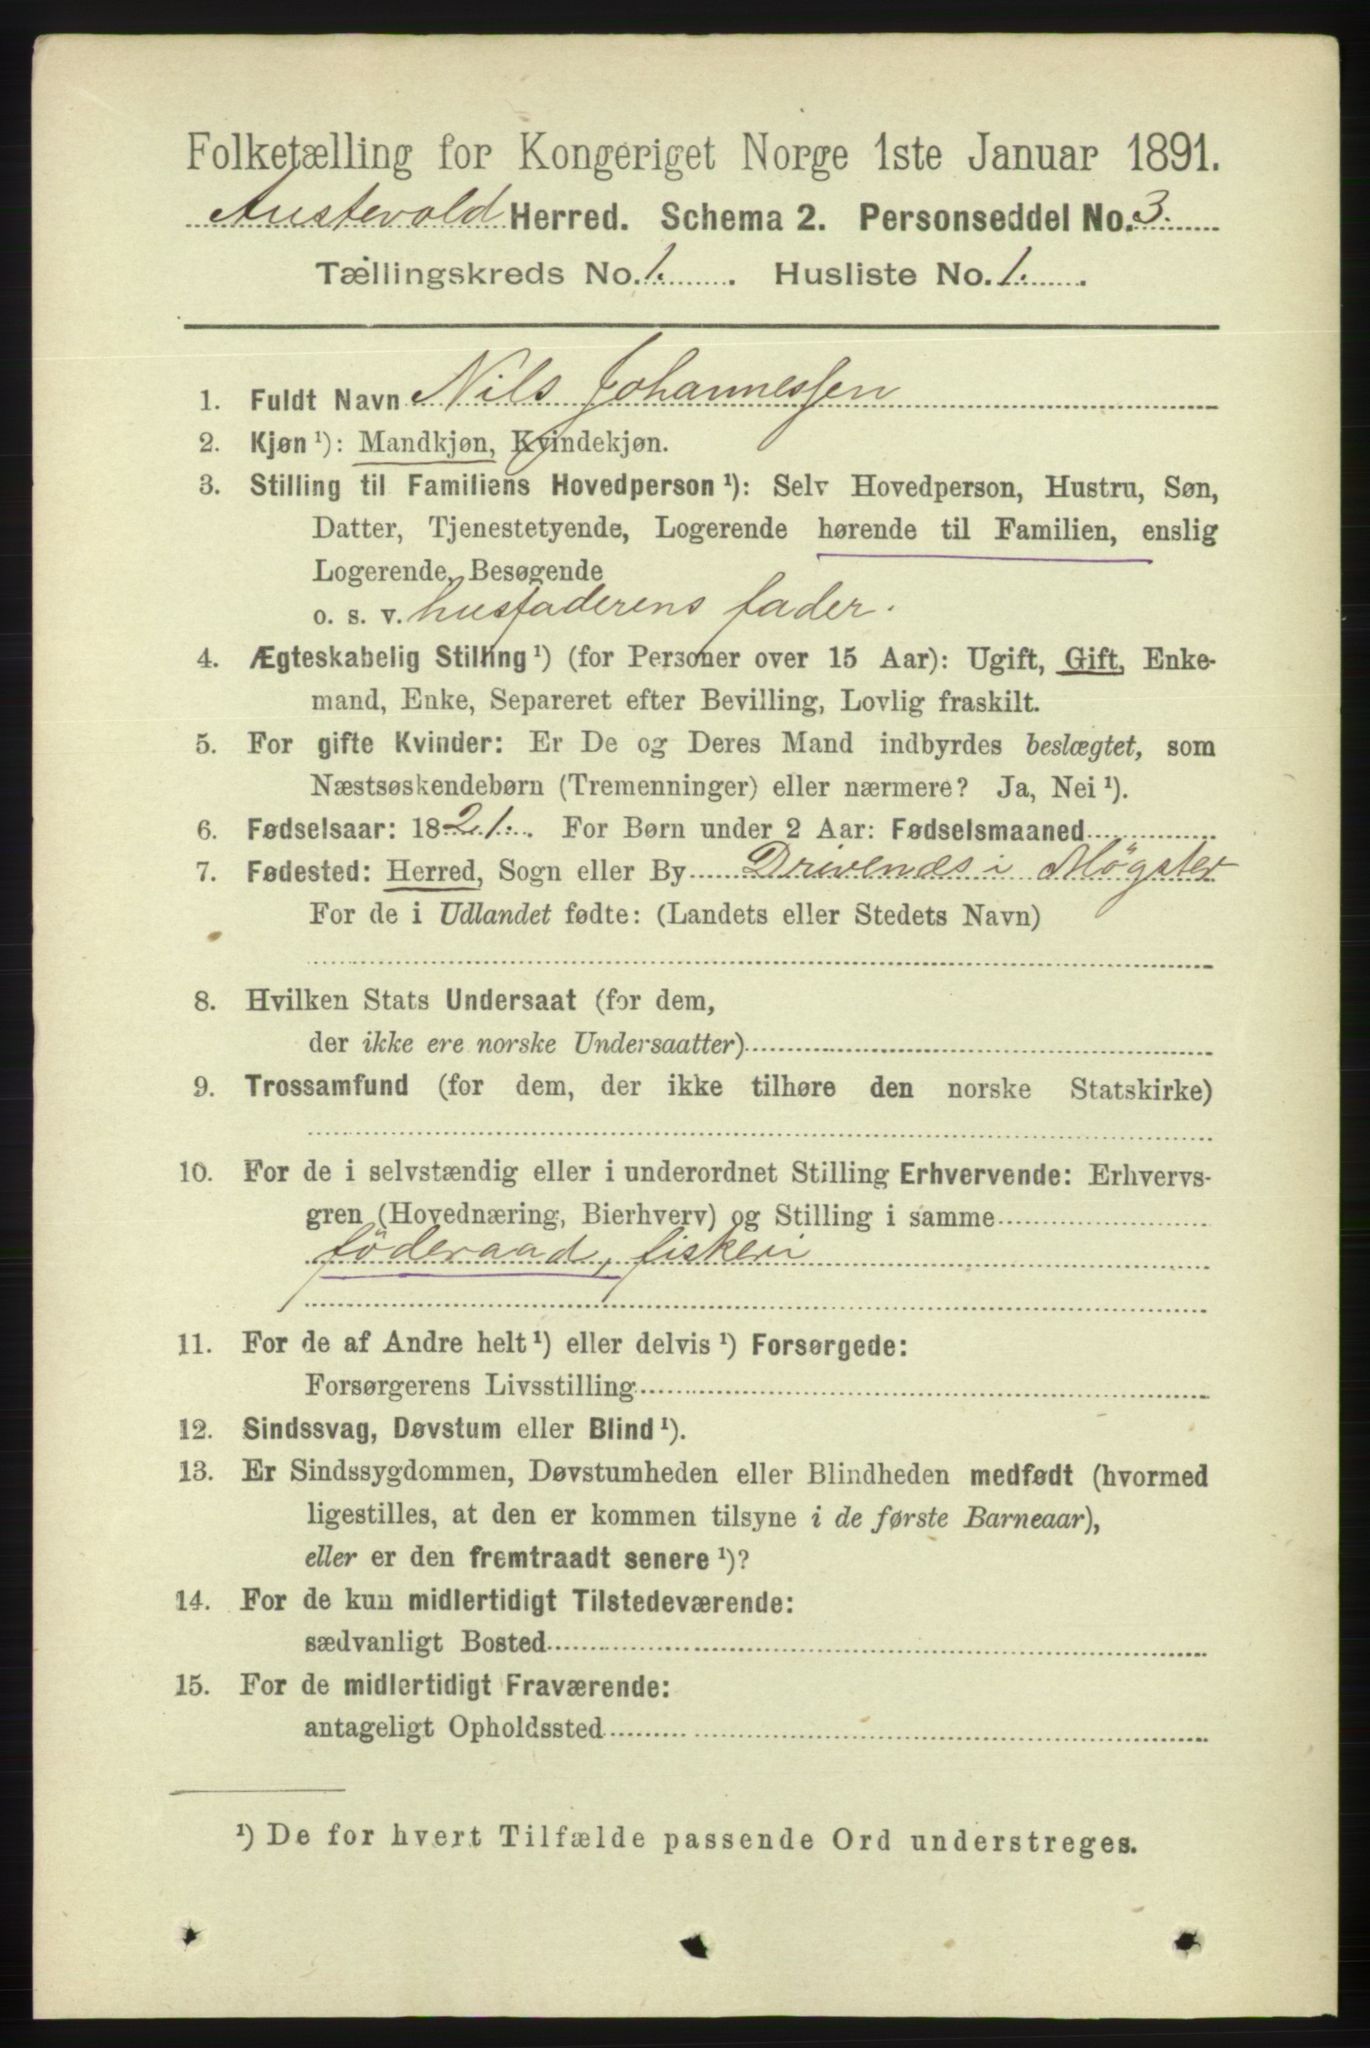 Folketælling for Kongeriget Norge 1ste Januar 1891.
Austevold Herred. Schema 2. Personseddel No. 3.
Tællingskreds No. 1. Husliste No. 1.
1. Fuldt Navn Nils Johannessen
2. Kjøn ¹): Mandkjøn, Kvindekjøn.
3. Stilling til Familiens Hovedperson ¹): Selv Hovedperson, Hustru, Søn,
Datter, Tjenestetyende, Logerende hørende til Familien, enslig
Logerende, Besøgende
o. s. v. husfaderens fader.
4. Ægteskabelig Stilling ¹) (for Personer over 15 Aar): Ugift, Gift, Enke-
mand, Enke, Separeret efter Bevilling, Lovlig fraskilt.
5. For gifte Kvinder: Er De og Deres Mand indbyrdes beslægtet, som
Næstsøskendebørn (Tremenninger) eller nærmere? Ja, Nei ¹).
6. Fødselsaar: 1821. For Børn under 2 Aar: Fødselsmaaned
7. Fødested: Herred, Sogn eller By Drivenæs i Møgster
For de i Udlandet fødte: (Landets eller Stedets Navn)
8. Hvilken Stats Undersaat (for dem,
der ikke ere norske Undersaatter)
9. Trossamfund (for dem, der ikke tilhøre den norske Statskirke)
10. For de i selvstændig eller i underordnet Stilling Erhvervende: Erhvervs-
gren (Hovednæring, Bierhverv) og Stilling i samme
föderaad, fiskeri
11. For de af Andre helt ¹) eller delvis ¹) Forsørgede:
Forsørgerens Livsstilling
12. Sindssvag, Døvstum eller Blind ¹).
13. Er Sindssygdommen, Døvstumheden eller Blindheden medfødt (hvormed
ligestilles, at den er kommen tilsyne i de første Barneaar),
eller er den fremtraadt senere ¹)?
14. For de kun midlertidigt Tilstedeværende:
sædvanligt Bosted
15. For de midlertidigt Fraværende:
antageligt Opholdssted
¹) De for hvert Tilfælde passende Ord understreges.